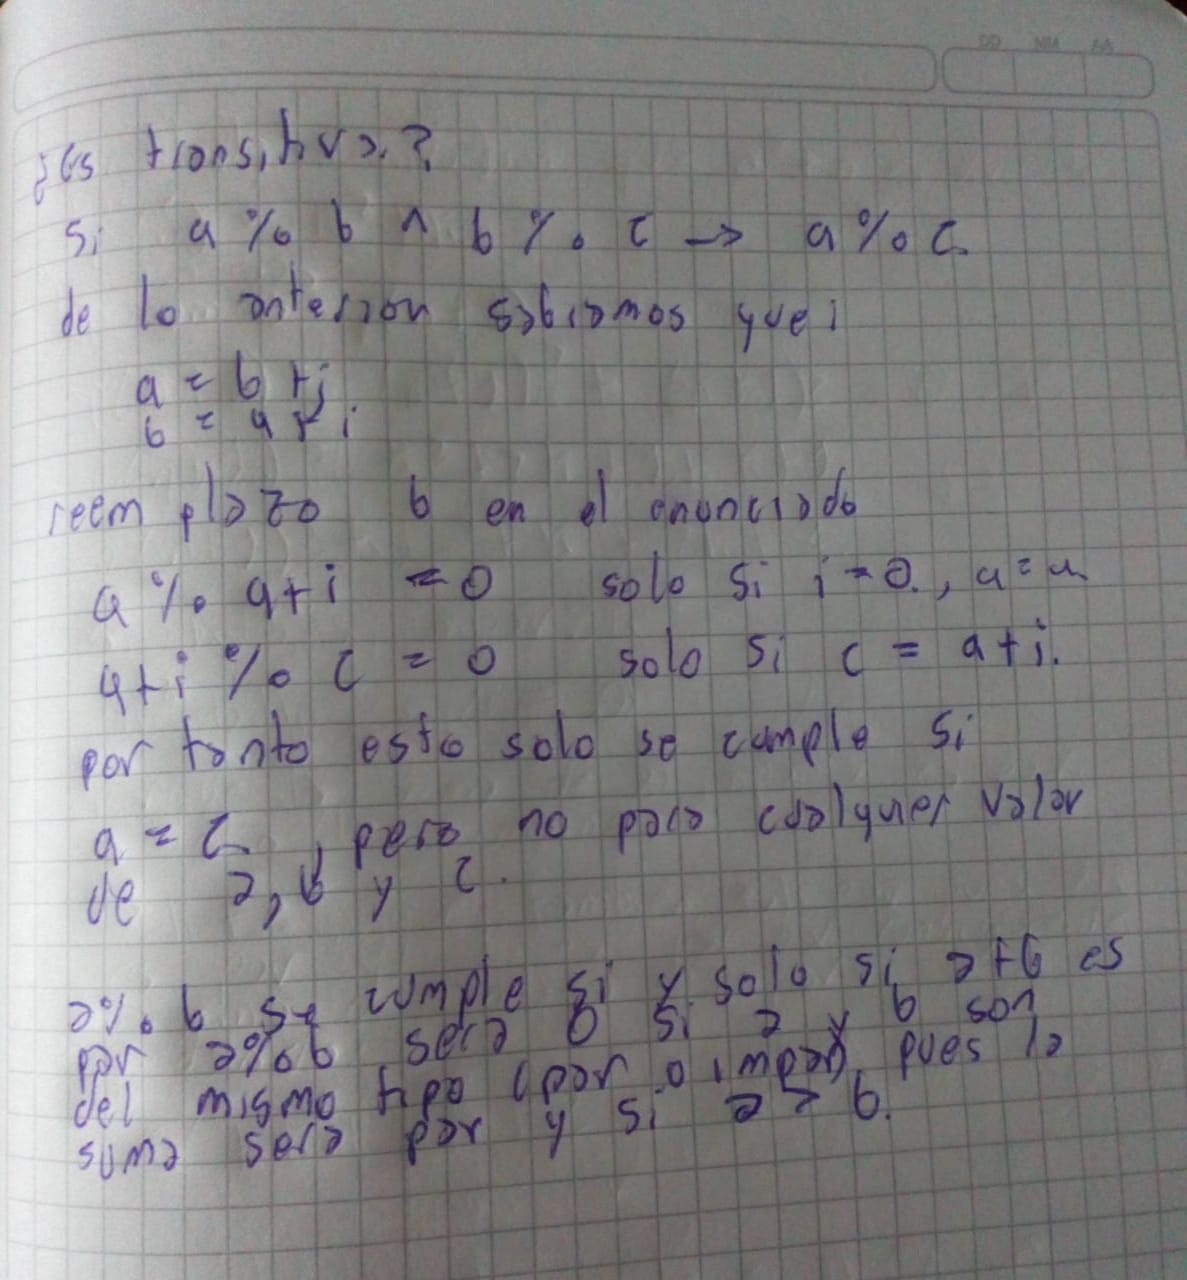 ¿Es transitiva?
Si a % b ∧ b % c → a % c.
de lo anterior sabiamos que:
a = b + j
b = a + i
reemplazo b en el enunciado
a % a+i = 0 solo si i = 0, a = a
a+i % c = 0 solo si c = a+i.
por tanto esto solo se cumple si
a = c, pero no para cualquier valor
de a, b y c.
a % b se cumple si y solo si a+b es
par a%b sera 0 si a y b son
del mismo tipo (par o impar) pues la
suma sera par y si a = b.